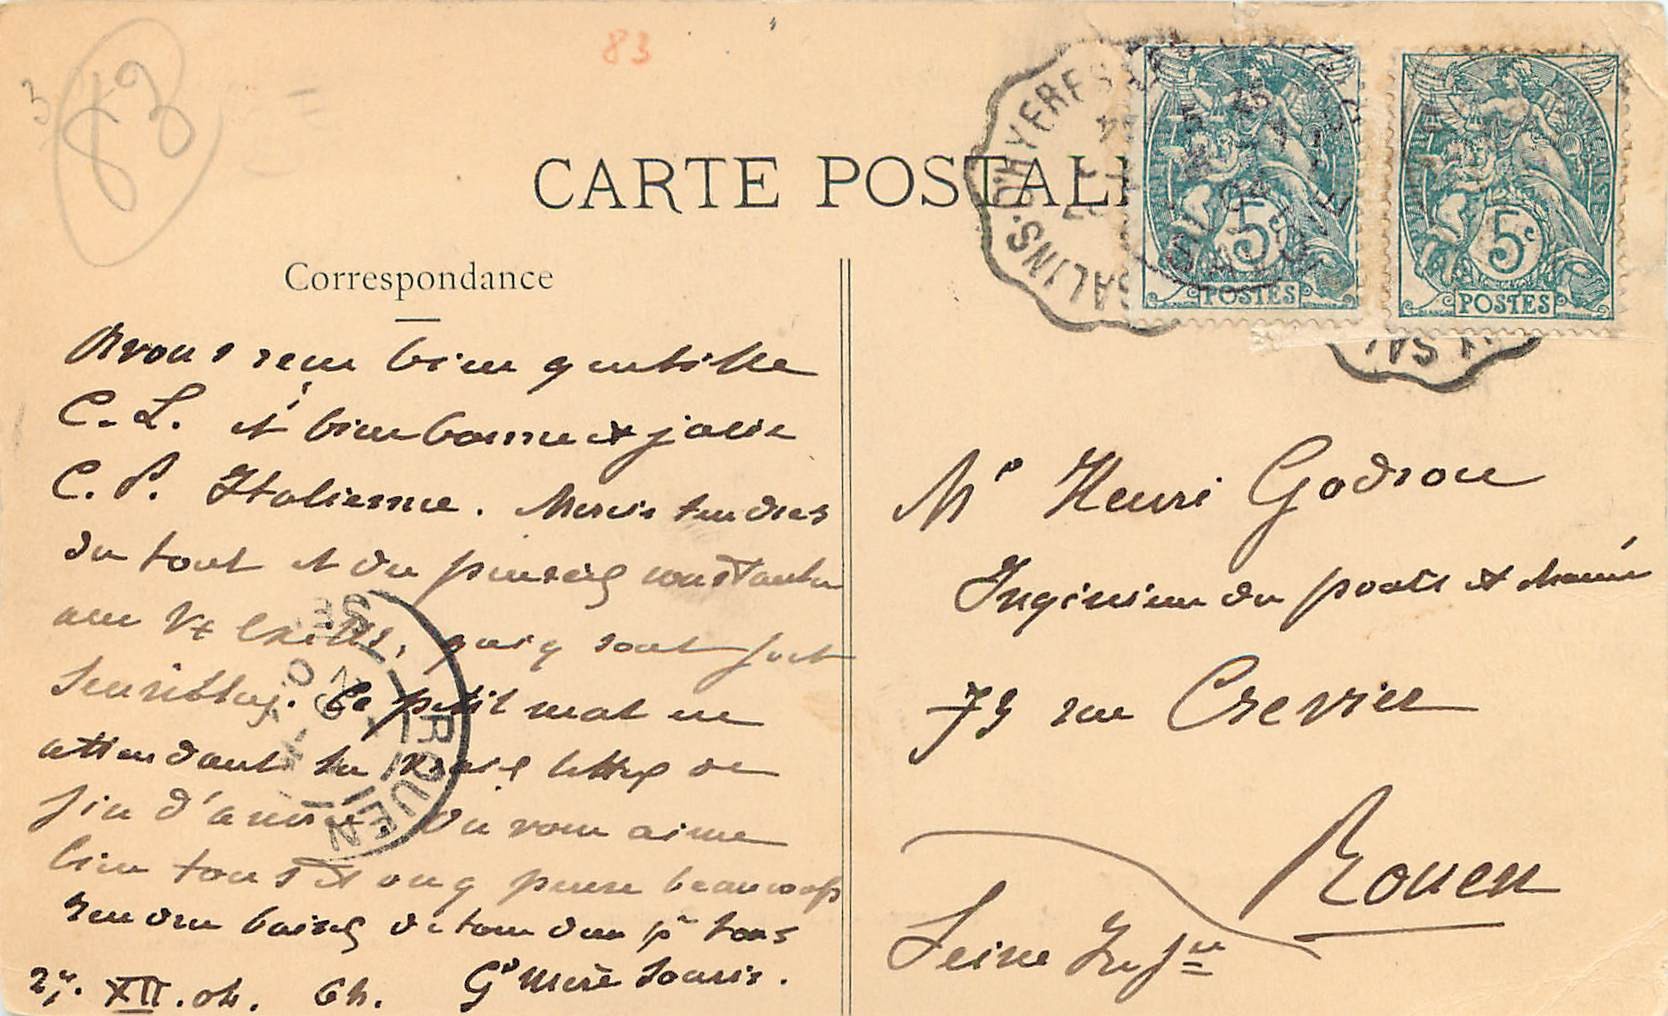 83
3
83
CARTE POSTALE
SALINS-D'HYERES
5c
POSTES
5c
POSTES
Correspondance
Avons reçu bien gentille
C. L. et bien bonne et jolie
C. P. Italienne. Mercis tendres
du tout et du
sont fort
sensibles. Ce petit mot en
attendant la lettre de
fin d'année. On vous aime
bien tous et on pense beaucoup
tendres baisers de tous deux pr tous
27. XII. 04. Ch. Gd Mère Souris.
ROUEN
Mr Henri Godron
Ingénieur du ponts et chaussées
79 rue Crevier
Rouen
Seine Infre